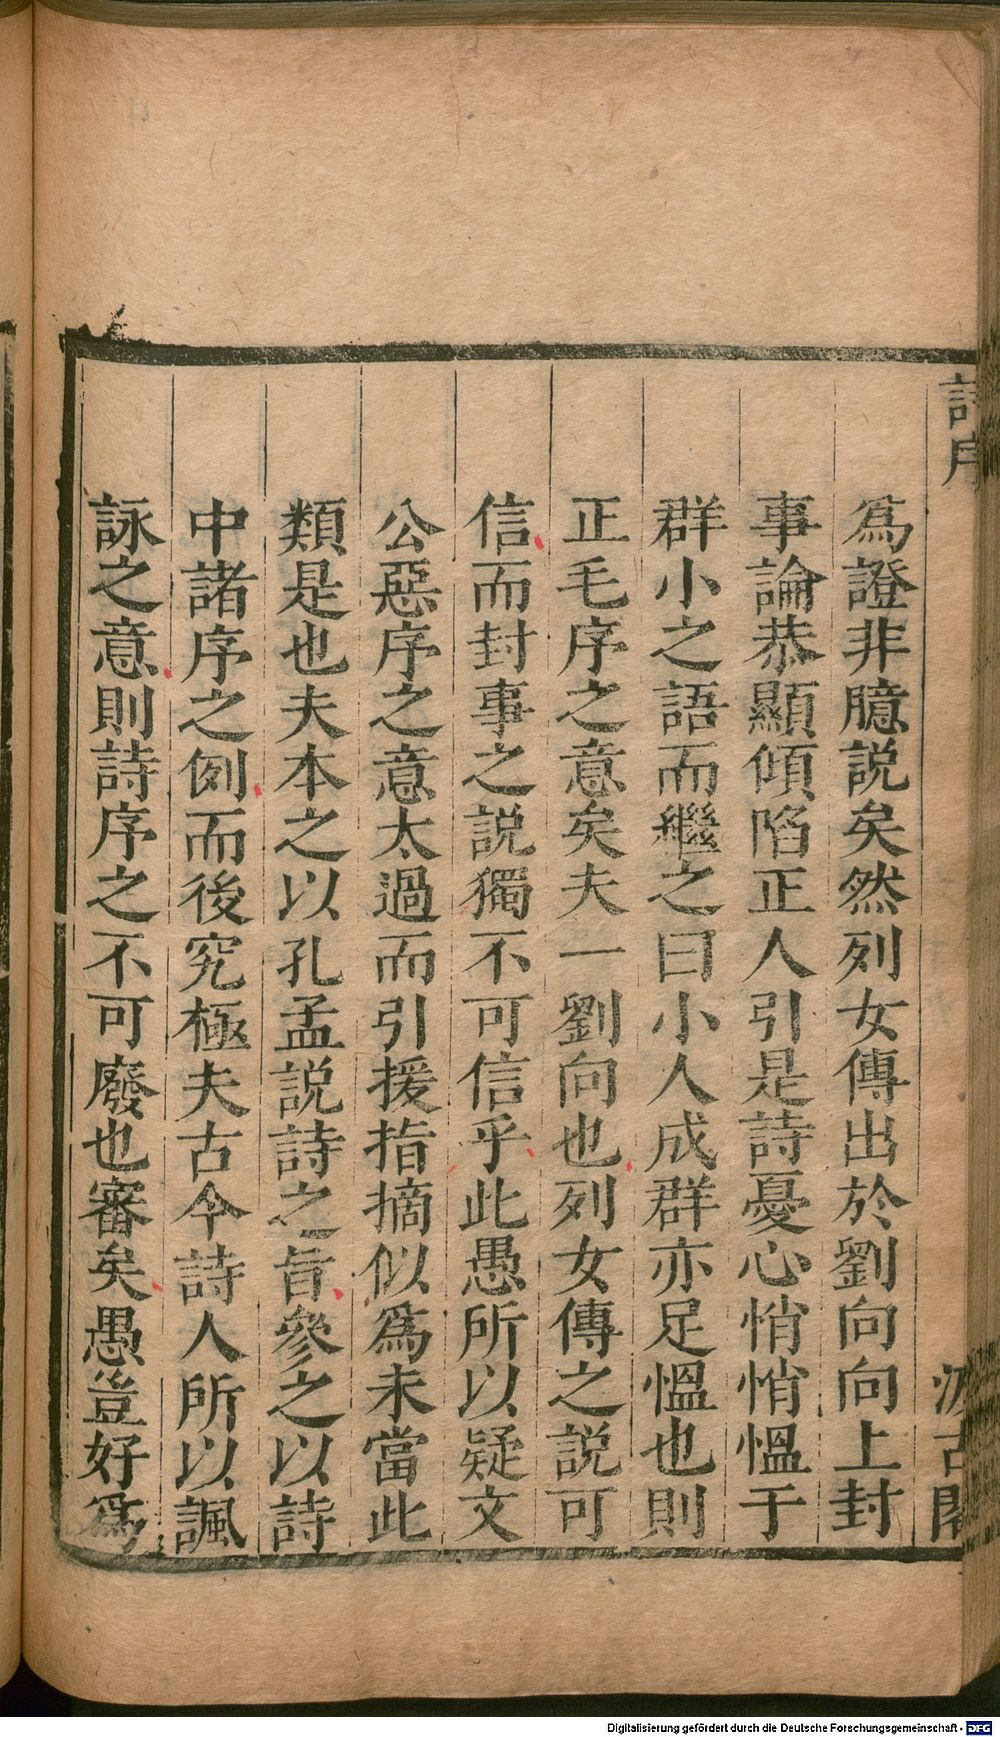 詩序
汲古閣
爲證非臆説矣然列女傳出於劉向向上封
事論恭顯傾陷正人引是詩憂心悄悄愠于
群小之語而繼之曰小人成群亦足愠也則
正毛序之意矣夫一劉向也列女傳之説可
信而封事之説獨不可信乎此愚所以疑文
公惡序之意太過而引援指摘似爲未當此
類是也夫本之以孔孟説詩之旨參之以詩
中諸序之例而後究極夫古今詩人所以諷
詠之意則詩序之不可廢也審矣愚豈好爲
Digitalisierung gefördert durch die Deutsche Forschungsgemeinschaft - DFG